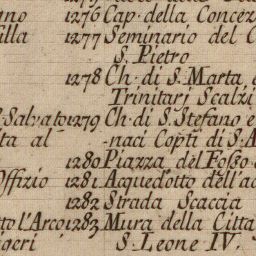 gno 1276 Cap. della Concez
illa 1277 Seminario del C
S. Pietro
1278 Ch. di S. Marta e
Trinitari Scalzi
S. Salvato 1279 Ch. di S. Stefano e
ta al -naci Copti di S. A
1280 Piazza del Fosso
Offizio 1281 Aquedotto dell'ac
1282 Strada Scaccia
tto l'Arco 1283 Mura della Citta
geri S. Leone IV.